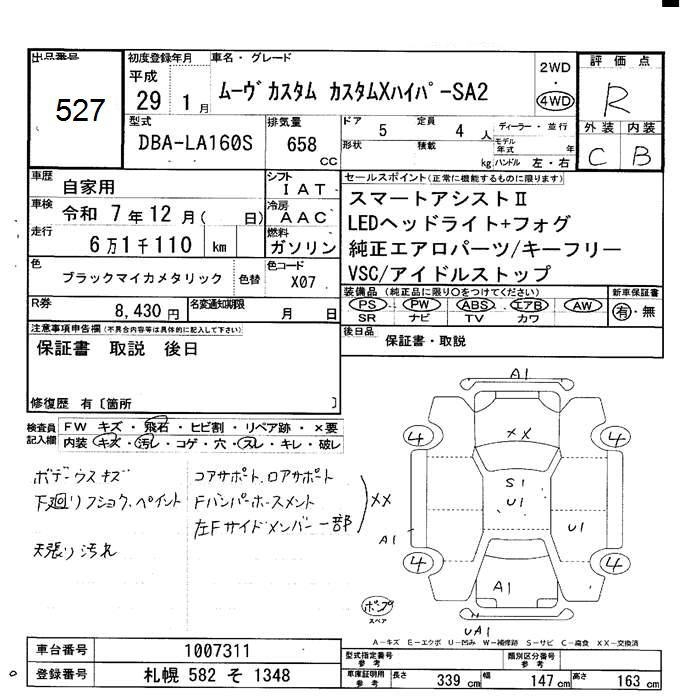 出品番号
527
初度登録年月
平成
29 1 月
車名・グレード
ムーヴカスタム カスタムXハイパーSA2
2WD
・
4WD
評価点
R
外装 内装
C B
型式
DBA-LA160S
排気量
658
cc
ドア 5 定員 4 人
形状 積載 kg
ディーラー・並行
モデル年式 年
ハンドル 左・右
車歴
自家用
シフト
IAT
車検
令和 7年 12月( 日)
冷房
AAC
走行
6万1千110 km
燃料
ガソリン
色
ブラックマイカメタリック 色替
色コード
X07
R券
8,430 円
名変通知期限
月 日
セールスポイント(正常に機能するものに限ります)
スマートアシストⅡ
LEDヘッドライト+フォグ
純正エアロパーツ/キーフリー
VSC/アイドルストップ
装備品(純正品に限り○をつけてください)
PS PW ABS エアB AW
SR ナビ TV カワ
新車保証書
有・無
後日品
保証書・取説
注意事項申告欄(不具合内容等は具体的に記入して下さい)
保証書 取説 後日
修復歴 有〔箇所 〕
検査員
記入欄
FW キズ・飛石・ヒビ割・リペア跡・×要
内装 キズ・汚レ・コゲ・穴・スレ・キレ・破レ
ボデーウスキズ
下廻りフショク、ペイント
天張り汚れ
コアサポート、ロアサポート
Fバンパーホースメント
左Fサイドメンバー一部
XX
A1
XX
4 4
S1
U1
A1
U1
4 4
A1
UA1
ポンプ
スペア
A-キズ E-エクボ U-凹み W-補修跡 S-サビ C-腐食 XX-交換済
車台番号
1007311
登録番号
札幌 582 そ 1348
型式指定番号
参考
類別区分番号
参考
車庫証明用
参考
長さ 339 cm 幅 147 cm 高さ 163 cm